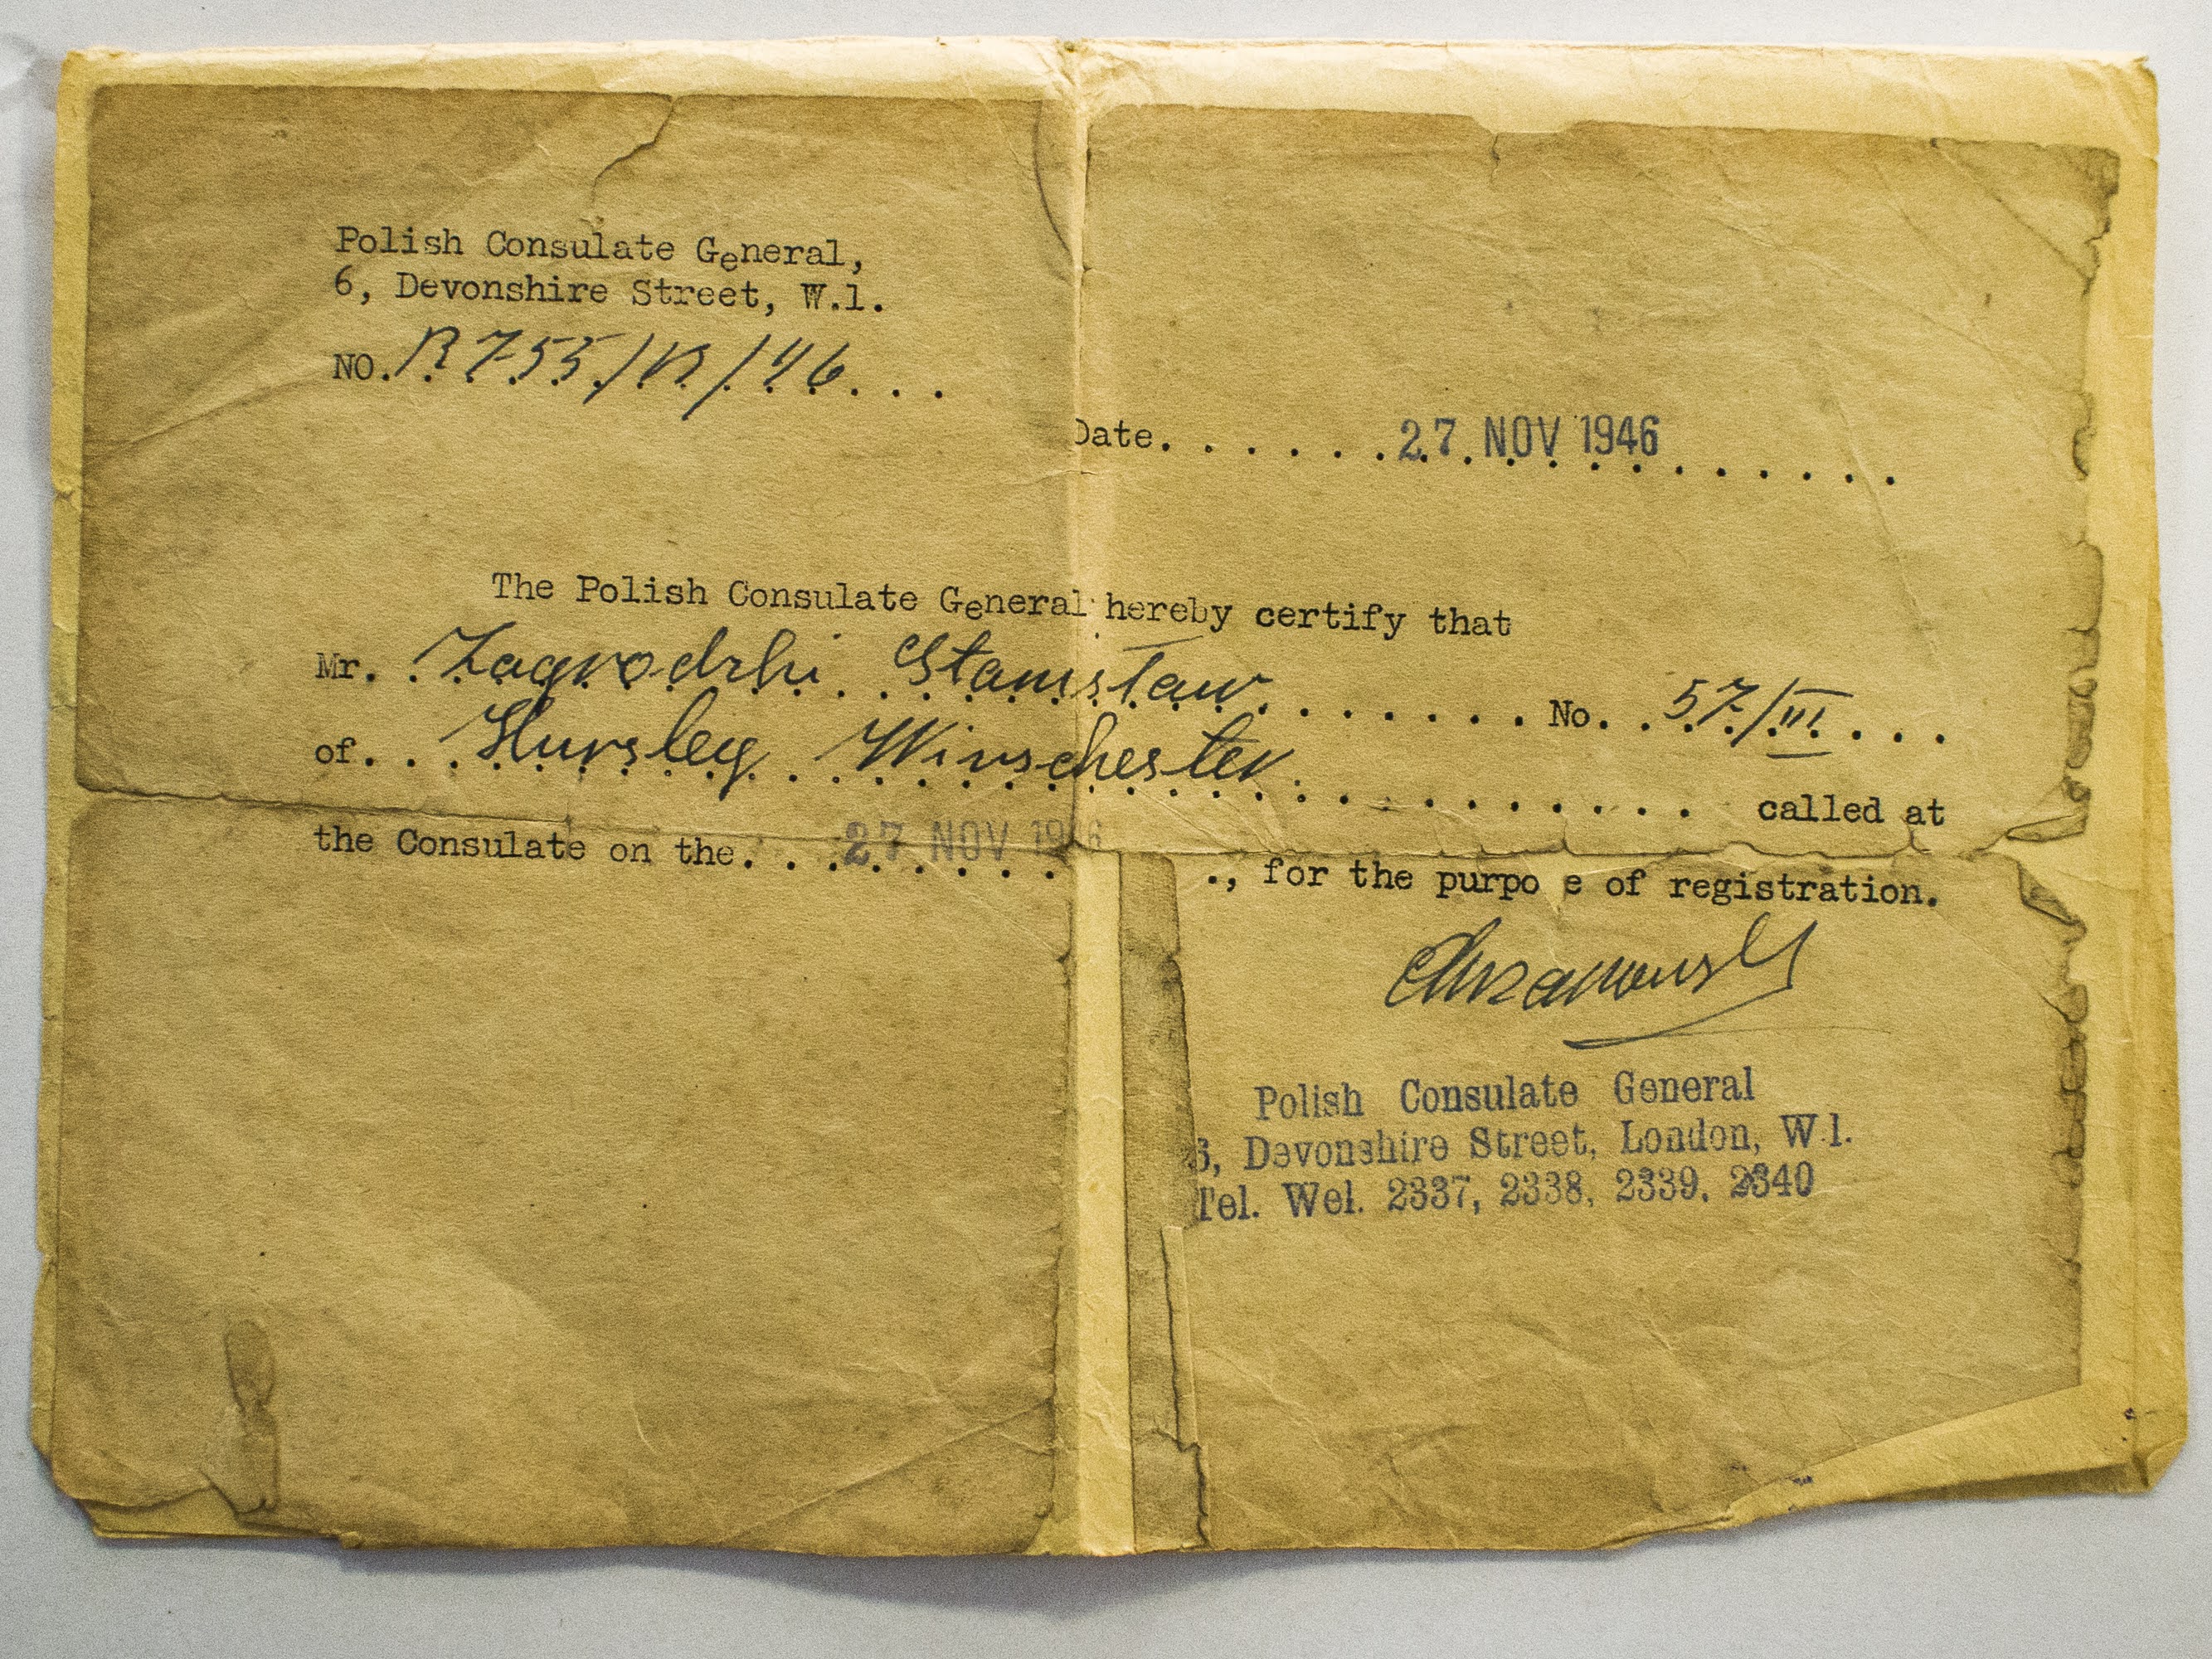 Polish Consulate General,
6, Devonshire Street, W.1.
NO. R755/R/46...
Date. . . . . . 27 NOV 1946 . . . . .
The Polish Consulate General hereby certify that
Mr. Zagrodzki Stanisław . . . . . . . No. 57/III . . .
of. . . Hursley Winschester . . . . . . . . . . called at
the Consulate on the. . . 27 NOV 1946 ., for the purpo e of registration.
Polish Consulate General
6, Devonshire Street, London, W.1.
Tel. Wel. 2337, 2338, 2339, 2340